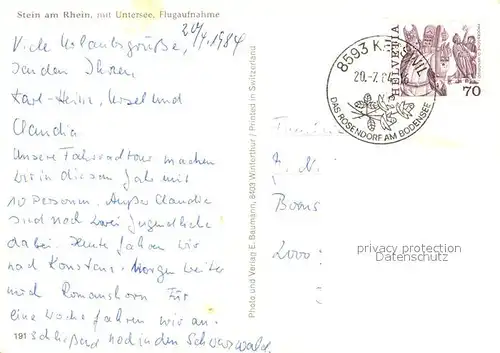 Stein am Rhein, mit Untersee, Flugaufnahme
20/7.1984
Viele Urlaubsgrüße,
senden Ihnen
Karl-Heinz, Ursel und
Claudia
Unsere Fahrradtour machen
wir in diesem Jahr mit
10 Personen. Außer Claudia
sind noch zwei Jugendliche
dabei. Heute fahren wir
nach Konstanz. Morgen weiter
nach Romanshorn. Für
eine Woche fahren wir an-
schließend noch in den Schwarzwald.
191
Photo und Verlag E. Baumann, 8403 Winterthur / Printed in Switzerland
8593
20.-7.84
DAS ROSENDORF AM BODENSEE
HELVETIA
70
F. N.
2000
privacy protection
Datenschutz